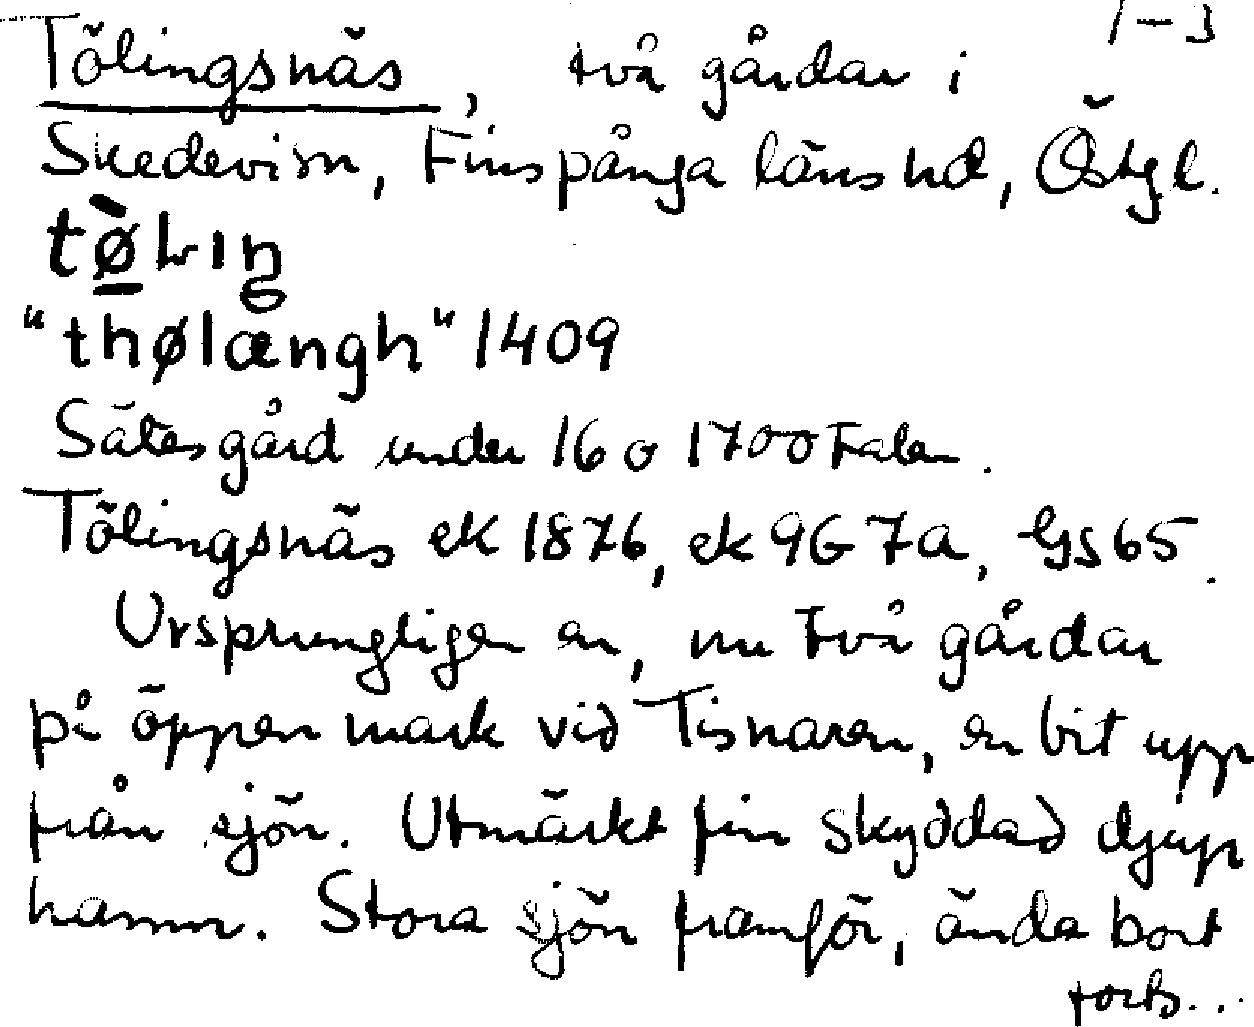 1-3
Tölingsnäs, två gårdar i
Skedevi sn, Finspånga läns hd, Östgl.
"thølængh" 1409
Sätesgård under 16 o 1700talen.
Tölingsnäs ek 1876, ek 9G 7a, GS65.
Ursprungligen en, nu två gårdar
på öppen mark vid Tisnaren, en bit upp
från sjön. Utmärkt fin skyddad djup
hamn. Stora sjön framför, ända bort
forts...